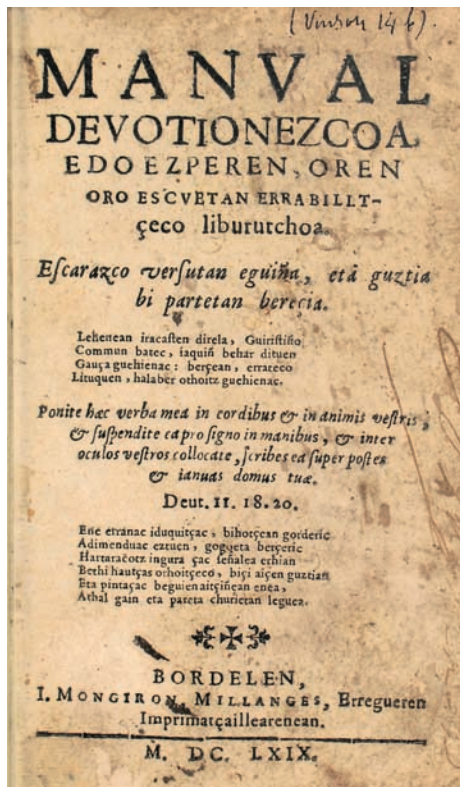 (Vinson 14 b).
MANVAL
DEVOTIONEZCOA,
EDO EZPEREN, OREN
ORO ESCVETAN ERRABILLT-
çeco liburutchoa.
Eſcarazco verſutan eguiña, etā guztia
bi partetan bereçia.
Lehenean iracaſten direla, Guiriſtiño
Commun batec, iaquiñ behar dituen
Gauça guehienac: berçean, errateco
Lituquen, halaber othoitz guehienac.
Ponite hæc verba mea in cordibus & in animis veſtris,
& ſuſpendite ea pro ſigno in manibus, & inter
oculos veſtros collocate, ſcribes ea ſuper poſtes
& ianuas domus tuæ.
Deut. 11. 18. 20.
Ene erranac iduquitçac, bihotçean gorderic
Adimenduac eztuen, gogoeta berçeric
Hartaracotz ingura çac ſeñalea erhian
Bethi hautças orhoitçeco, biçi aiçen guztian
Eta pintaçac beguien aitçiñean enea,
Athal gain eta pareta churietan leguea.
BORDELEN,
I. MONGIRON MILLANGES, Erregueren
Imprimatçaillearenean.
M. DC. LXIX.